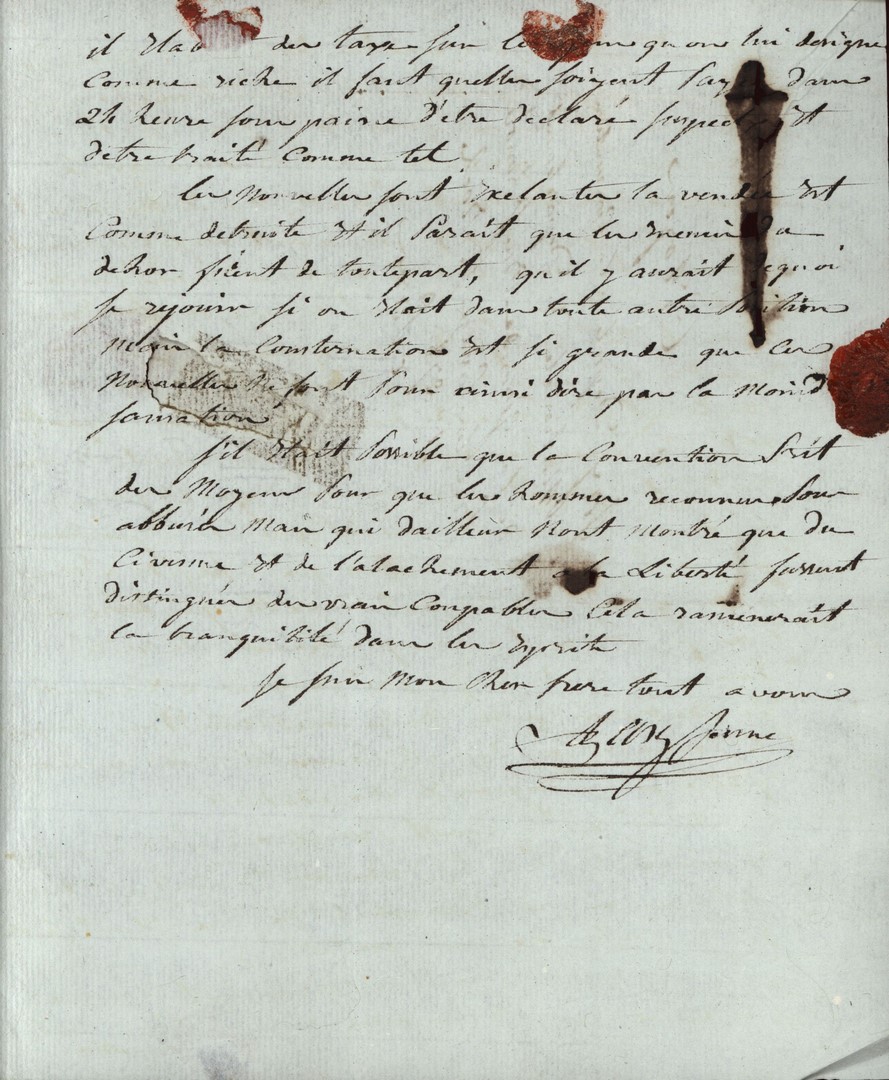 il etab des taxe sur le qu on lui designe
Comme riche il faut quelles soiyent payé dans
24 heure sous paine d'etre declaré suspect et
detre traité comme tel
les nouvelles sont exelantes la vendée est
Comme detruite et il Parait que les du
dehors de toutepart, qu il y aurait dequoi
se rejouir si on etait dans toute autre Position
mais la Consternation est si grande que Ces
Nouvelles ne font Pour ainsi dire pas la moind
sansation
s'il etait Possible que la Convention Prit
des Moyens Pour que les hommes reconnus Pour
abbusés mais qui dailleurs Nont montré que du
Civisme et de l'atachement a la Liberté fussent
distingués des vrais Coupables Cela rameneroit
la tranquilité dans les esprits
je suis Mon Cher frere tout a vous
jeune